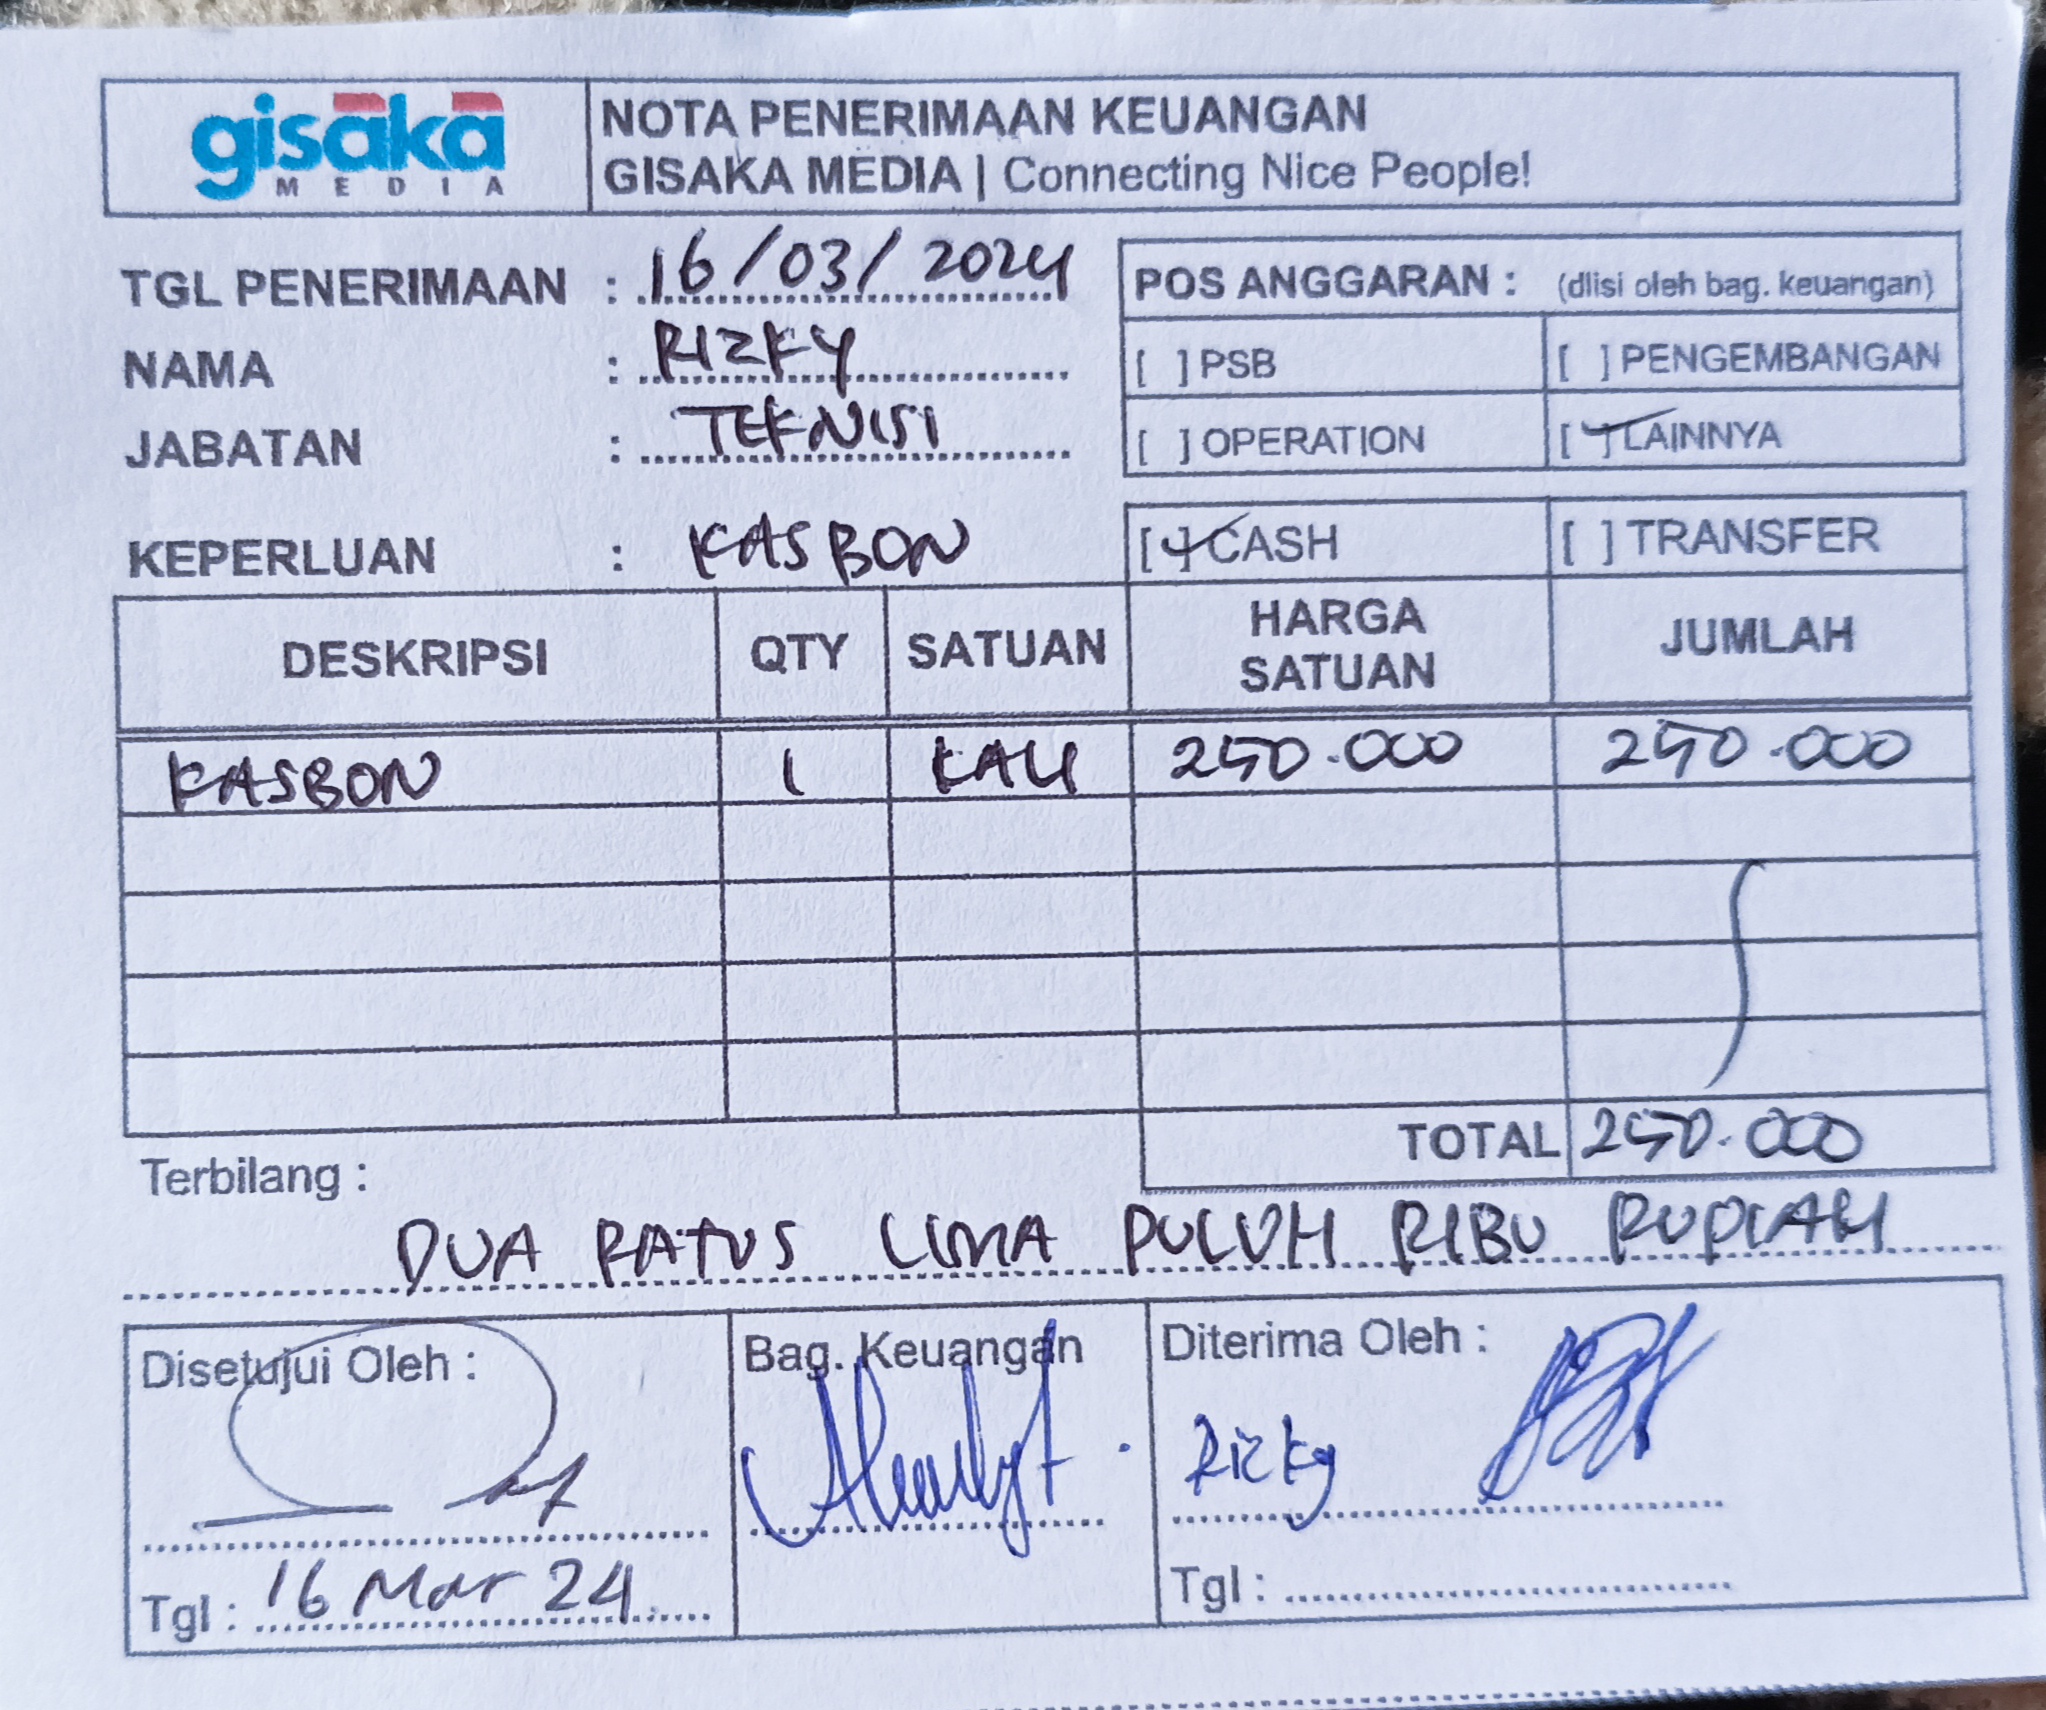 gisaka
MEDIA
NOTA PENERIMAAN KEUANGAN
GISAKA MEDIA | Connecting Nice People!
TGL PENERIMAAN : 16/03/2024
NAMA : RIZKY
JABATAN : TEKNISI
POS ANGGARAN : (dIisi oleh bag. keuangan)
[ ] PSB [ ] PENGEMBANGAN
[ ] OPERATION [✓] LAINNYA
KEPERLUAN : KASBON
[✓] CASH [ ] TRANSFER
DESKRIPSI QTY SATUAN HARGA SATUAN JUMLAH
KASBON 1 KALI 250.000 250.000
TOTAL 250.000
Terbilang :
DUA RATUS LIMA PULUH RIBU RUPIAH
Disetujui Oleh : Bag. Keuangan Diterima Oleh :
Rizky
Tgl : 16 Mar 24. Tgl :